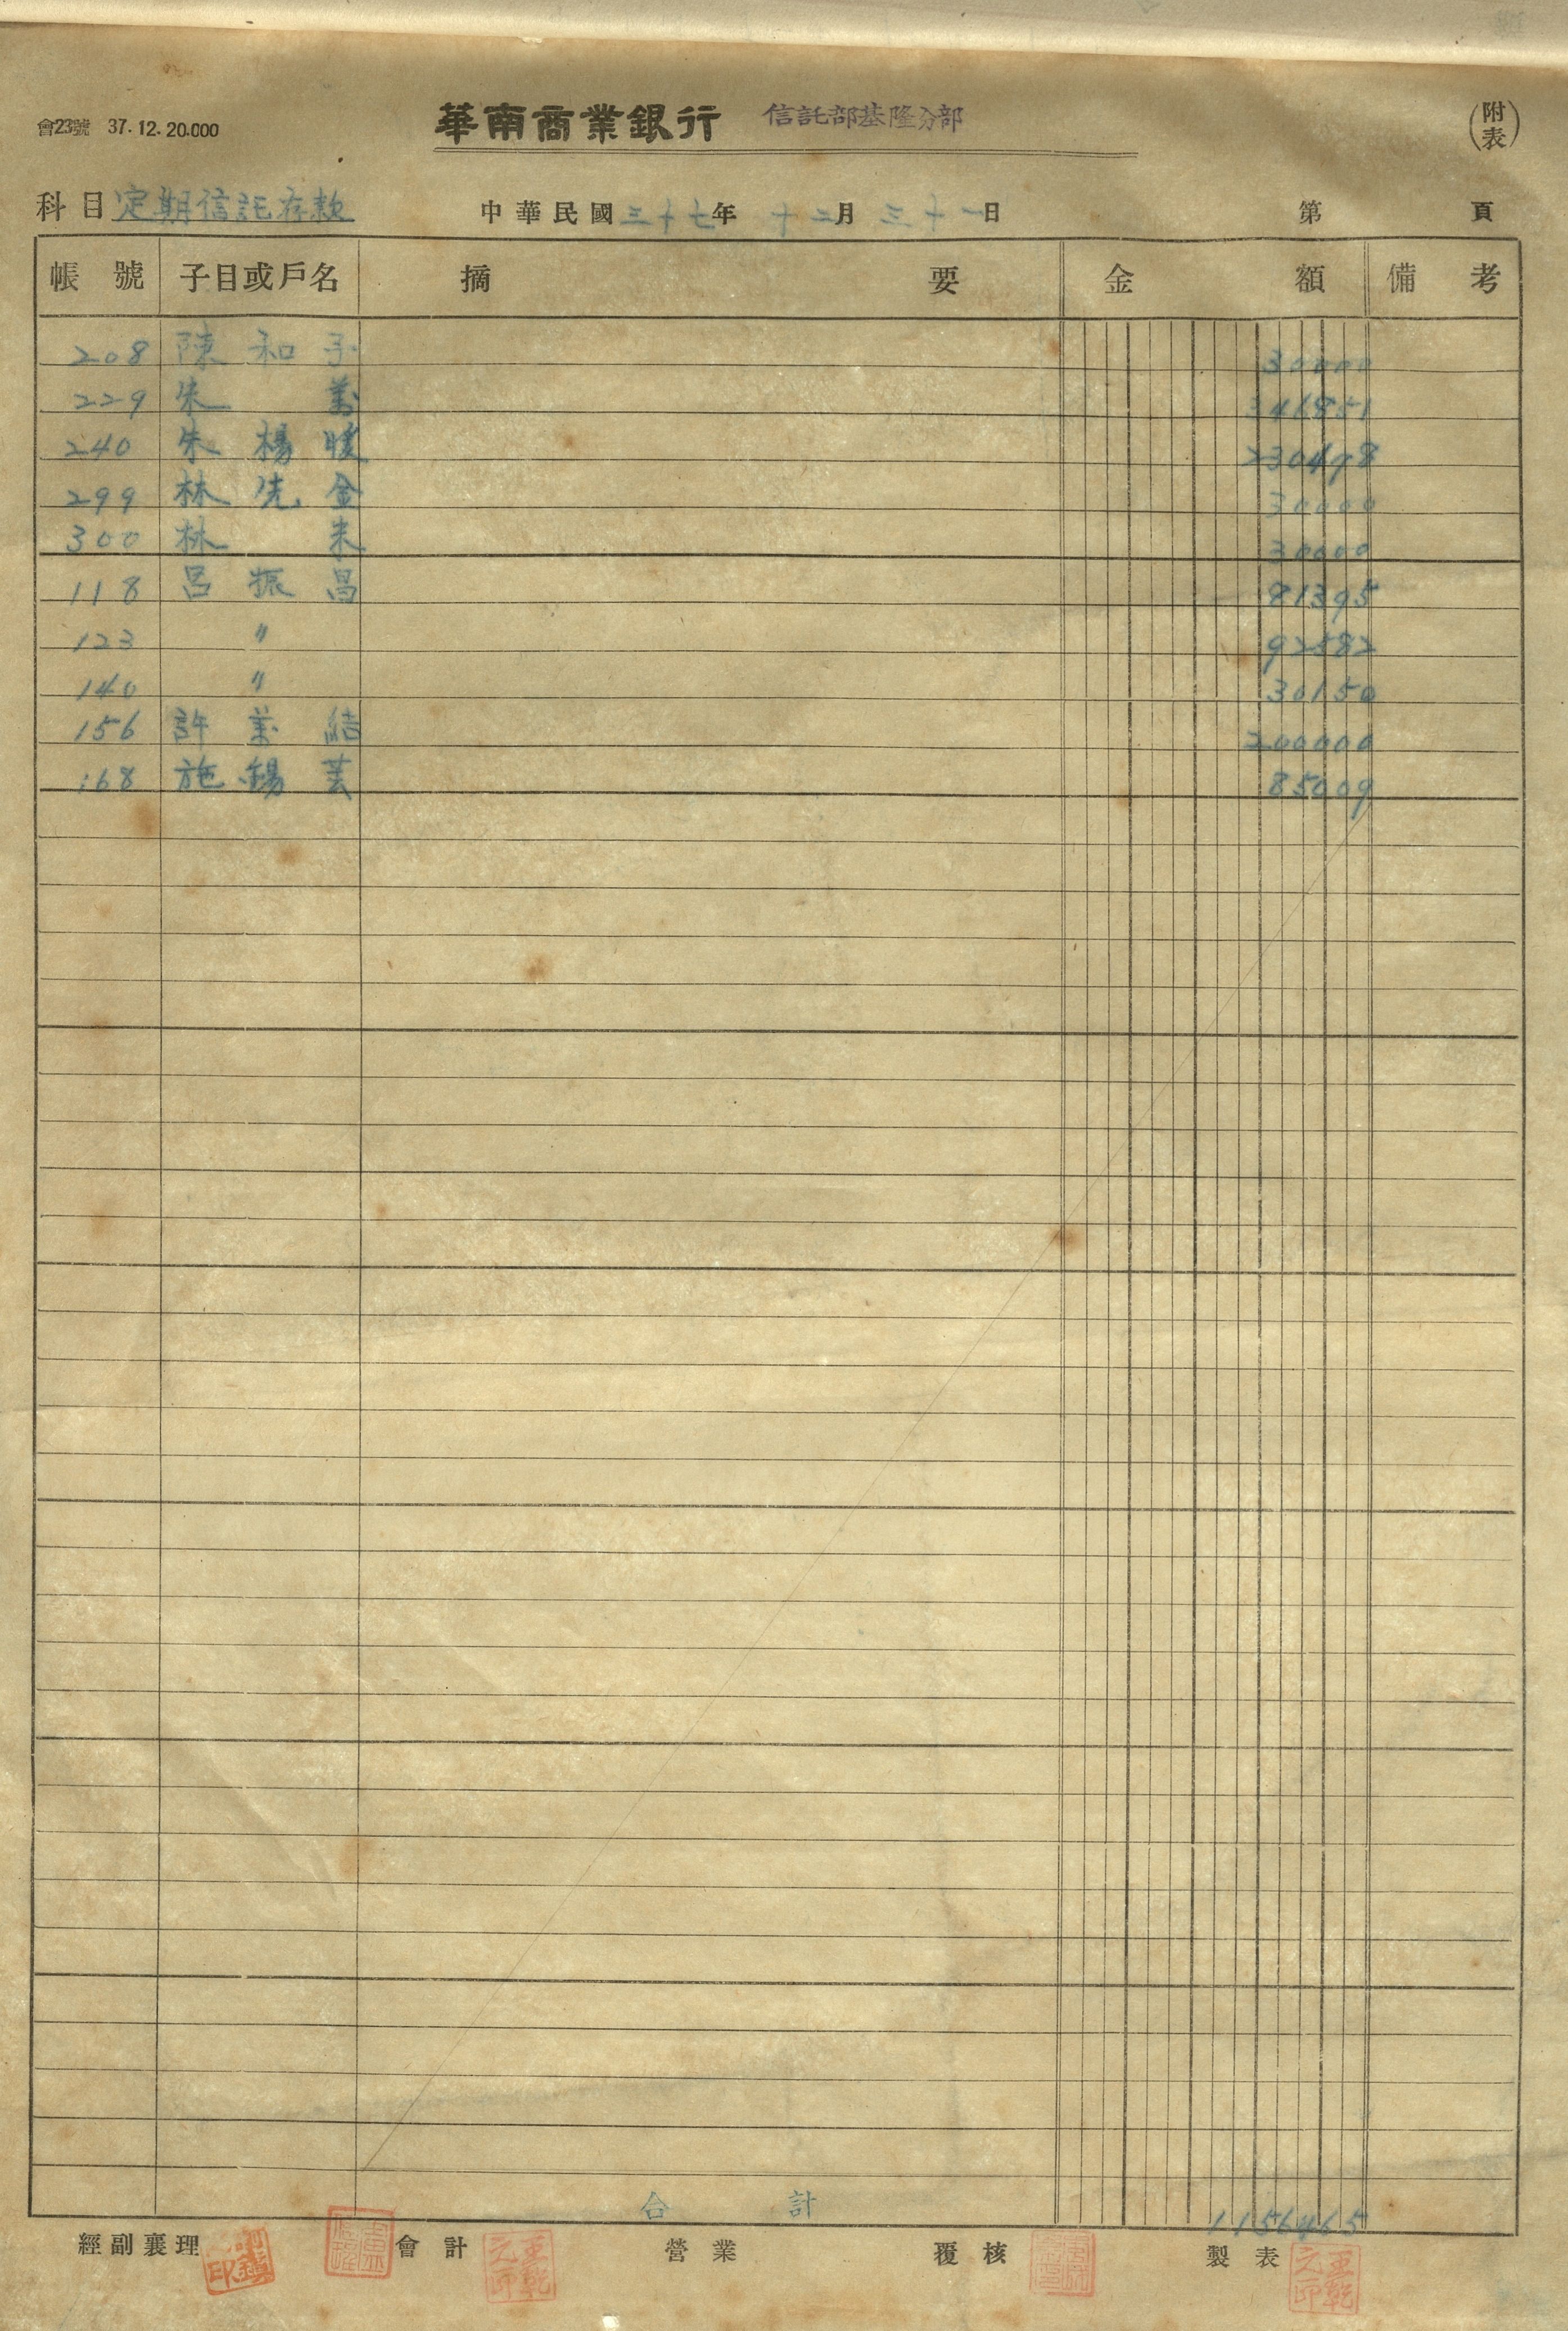 會23號 37.12.20.000
華南商業銀行 信託部基隆分部
(附表)
科目 定期信託存款 中華民國三十七年十二月三十一日 第 頁
帳號 子目或戶名 摘要 金額 備考
208 陳和子 30000
229 朱萬 346831
240 朱楊暖 230498
299 林先金 30000
300 林来 30000
118 呂振昌 81395
123 〃 92582
140 〃 30150
156 許萬結 200000
168 施錫 85009
合計 1156465
經副襄理 會計 營業 覆核 製表
王乾元印
王乾元印